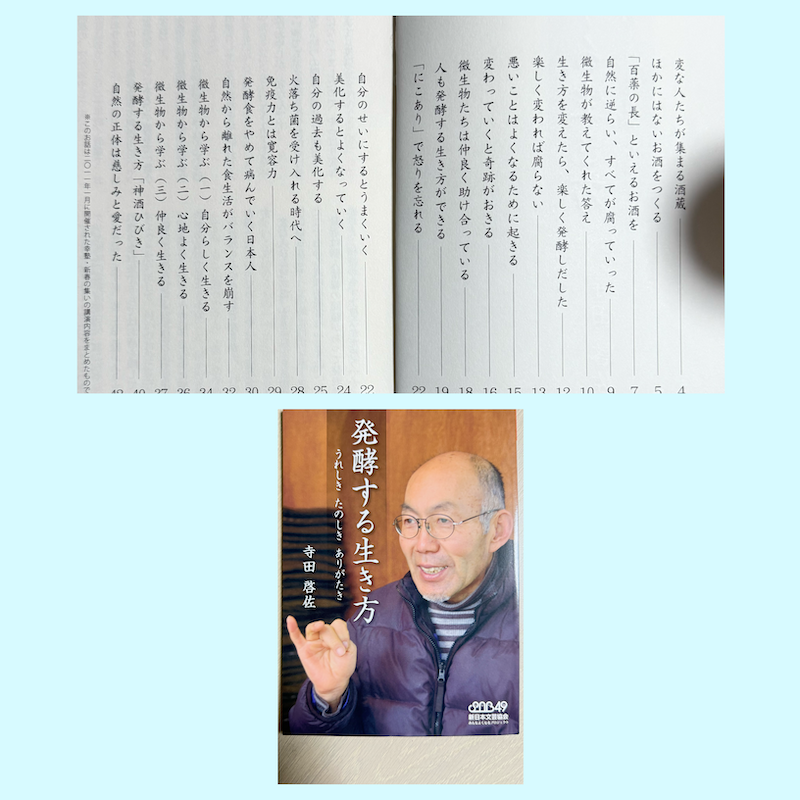 変な人たちが集まる酒蔵 4
ほかにはないお酒をつくる 5
「百薬の長」といえるお酒を 7
自然に逆らい、すべてが腐っていった 9
微生物が教えてくれた答え 10
生き方を変えたら、楽しく発酵しだした 12
楽しく変われば腐らない 13
悪いことはよくなるために起きる 15
変わっていくと奇跡がおきる 16
微生物たちは仲良く助け合っている 18
人も発酵する生き方ができる 19
「にこあり」で怒りを忘れる 22
自分のせいにするとうまくいく 22
美化するとよくなっていく 24
自分の過去も美化する 25
火落ち菌を受け入れる時代へ 28
免疫力とは寛容力 29
発酵食をやめて病んでいく日本人 30
自然から離れた食生活がバランスを崩す 32
微生物から学ぶ（一）自分らしく生きる 34
微生物から学ぶ（二）心地よく生きる 36
微生物から学ぶ（三）仲良く生きる 37
発酵する生き方「神酒ひびき」 40
自然の正体は慈しみと愛だった
※このお話は二〇一一年一月に開催された幸塾・新春の集いの講演内容をまとめたもので
発酵する生き方
うれしき たのしき ありがたき
寺田 啓佐
49
新日本文芸協会
みんなよくなるプロジェクト